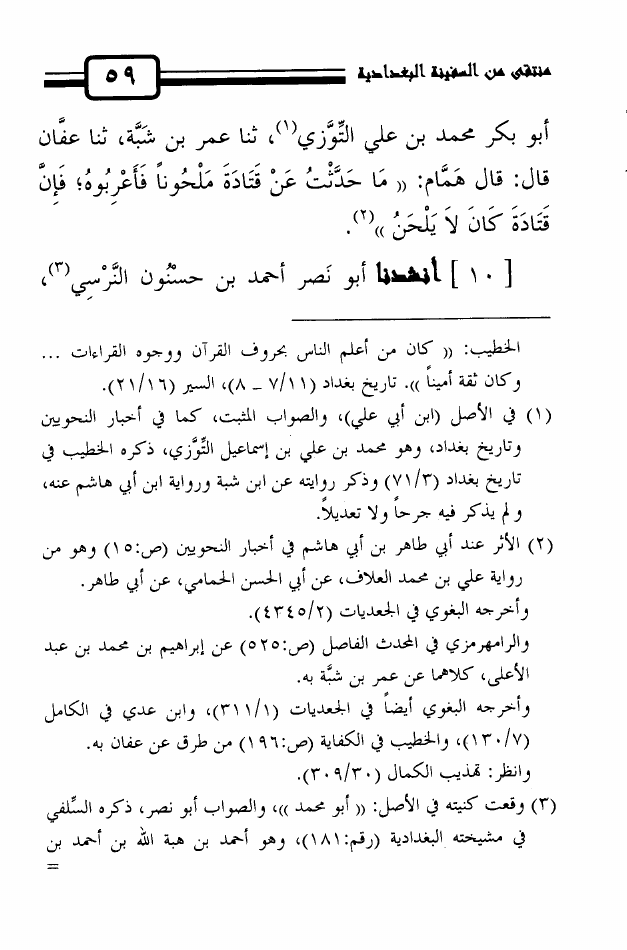 منتقى من السفينة البغدادية
٥٩
أبو بكر محمد بن علي التَّوَّزي(١)، ثنا عمر بن شَبَّة، ثنا عفَّان
قال: قال هَمَّام: « مَا حَدَّثْتُ عَنْ قَتَادَةَ مَلْحُوناً فَأَعْرِبُوهُ؛ فَإِنَّ
قَتَادَةَ كَانَ لاَ يَلْحَنُ »(٢).
[ ١٠ ] أنشدنا أبو نَصر أحمد بن حسْنُون النَّرْسِي(٣)،
الخطيب: « كان من أعلم الناس بحروف القرآن ووجوه القراءات ...
وكان ثقة أميناً ». تاريخ بغداد (٧/١١ ــ ٨)، السير (٢١/١٦).
(١) في الأصل (ابن أبي علي)، والصواب المثبت، كما في أخبار النحويين
وتاريخ بغداد، وهو محمد بن علي بن إسماعيل التَّوَّزي، ذكره الخطيب في
تاريخ بغداد (٧١/٣) وذكر روايته عن ابن شبة ورواية ابن أبي هاشم عنه،
ولم يذكر فيه جرحاً ولا تعديلاً.
(٢) الأثر عند أبي طاهر بن أبي هاشم في أخبار النحويين (ص:١٥) وهو من
رواية علي بن محمد العلاف، عن أبي الحسن الحمامي، عن أبي طاهر.
وأخرجه البغوي في الجعديات (٤٣٤٥/٢).
والرامهرمزي في المحدث الفاصل (ص:٥٢٥) عن إبراهيم بن محمد بن عبد
الأعلى، كلاهما عن عمر بن شبَّة به.
وأخرجه البغوي أيضاً في الجعديات (٣١١/١)، وابن عدي في الكامل
(١٣٠/٧)، والخطيب في الكفاية (ص:١٩٦) من طرق عن عفان به.
وانظر: تهذيب الكمال (٣٠٩/٣٠).
(٣) وقعت كنيته في الأصل: « أبو محمد »، والصواب أبو نصر، ذكره السِّلفي
في مشيخته البغدادية (رقم:١٨١)، وهو أحمد بن هبة الله بن أحمد بن
=